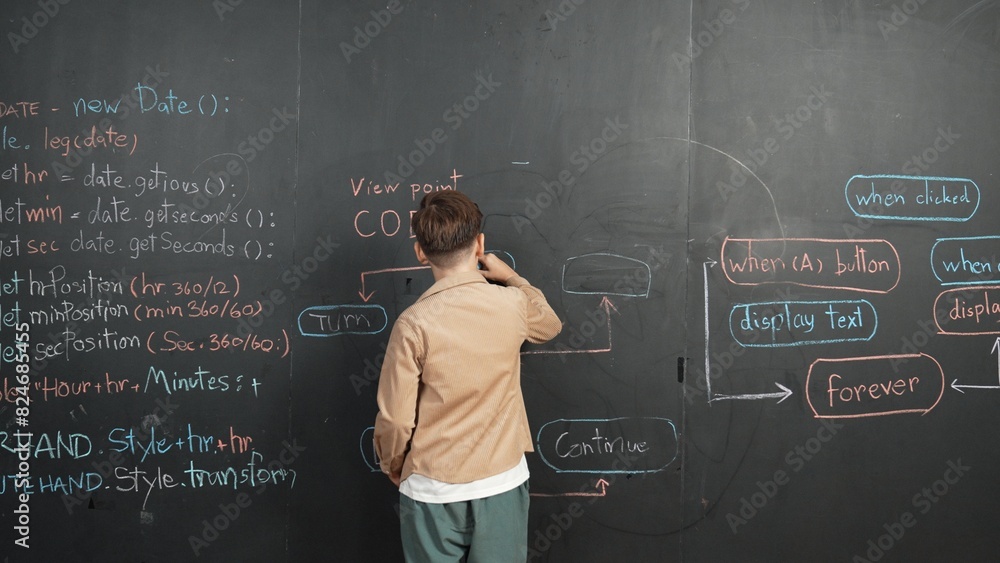 DATE - new Date():
le. leg(date)
let hr = date.getious():
let min = date.getseconds():
let sec date.getSeconds():
let hrPosition (hr 360/12)
let minPosition (min 360/60)
let secPosition (Sec. 360/60:
"Hour+hr+ Minutes: +
HAND. Style+hr+hr
UTEHAND. Style.transform
View point
CO
Turn
Continue
when clicked
when (A) button
display text
forever
when
display
Adobe Stock
Adobe Stock | #824685455